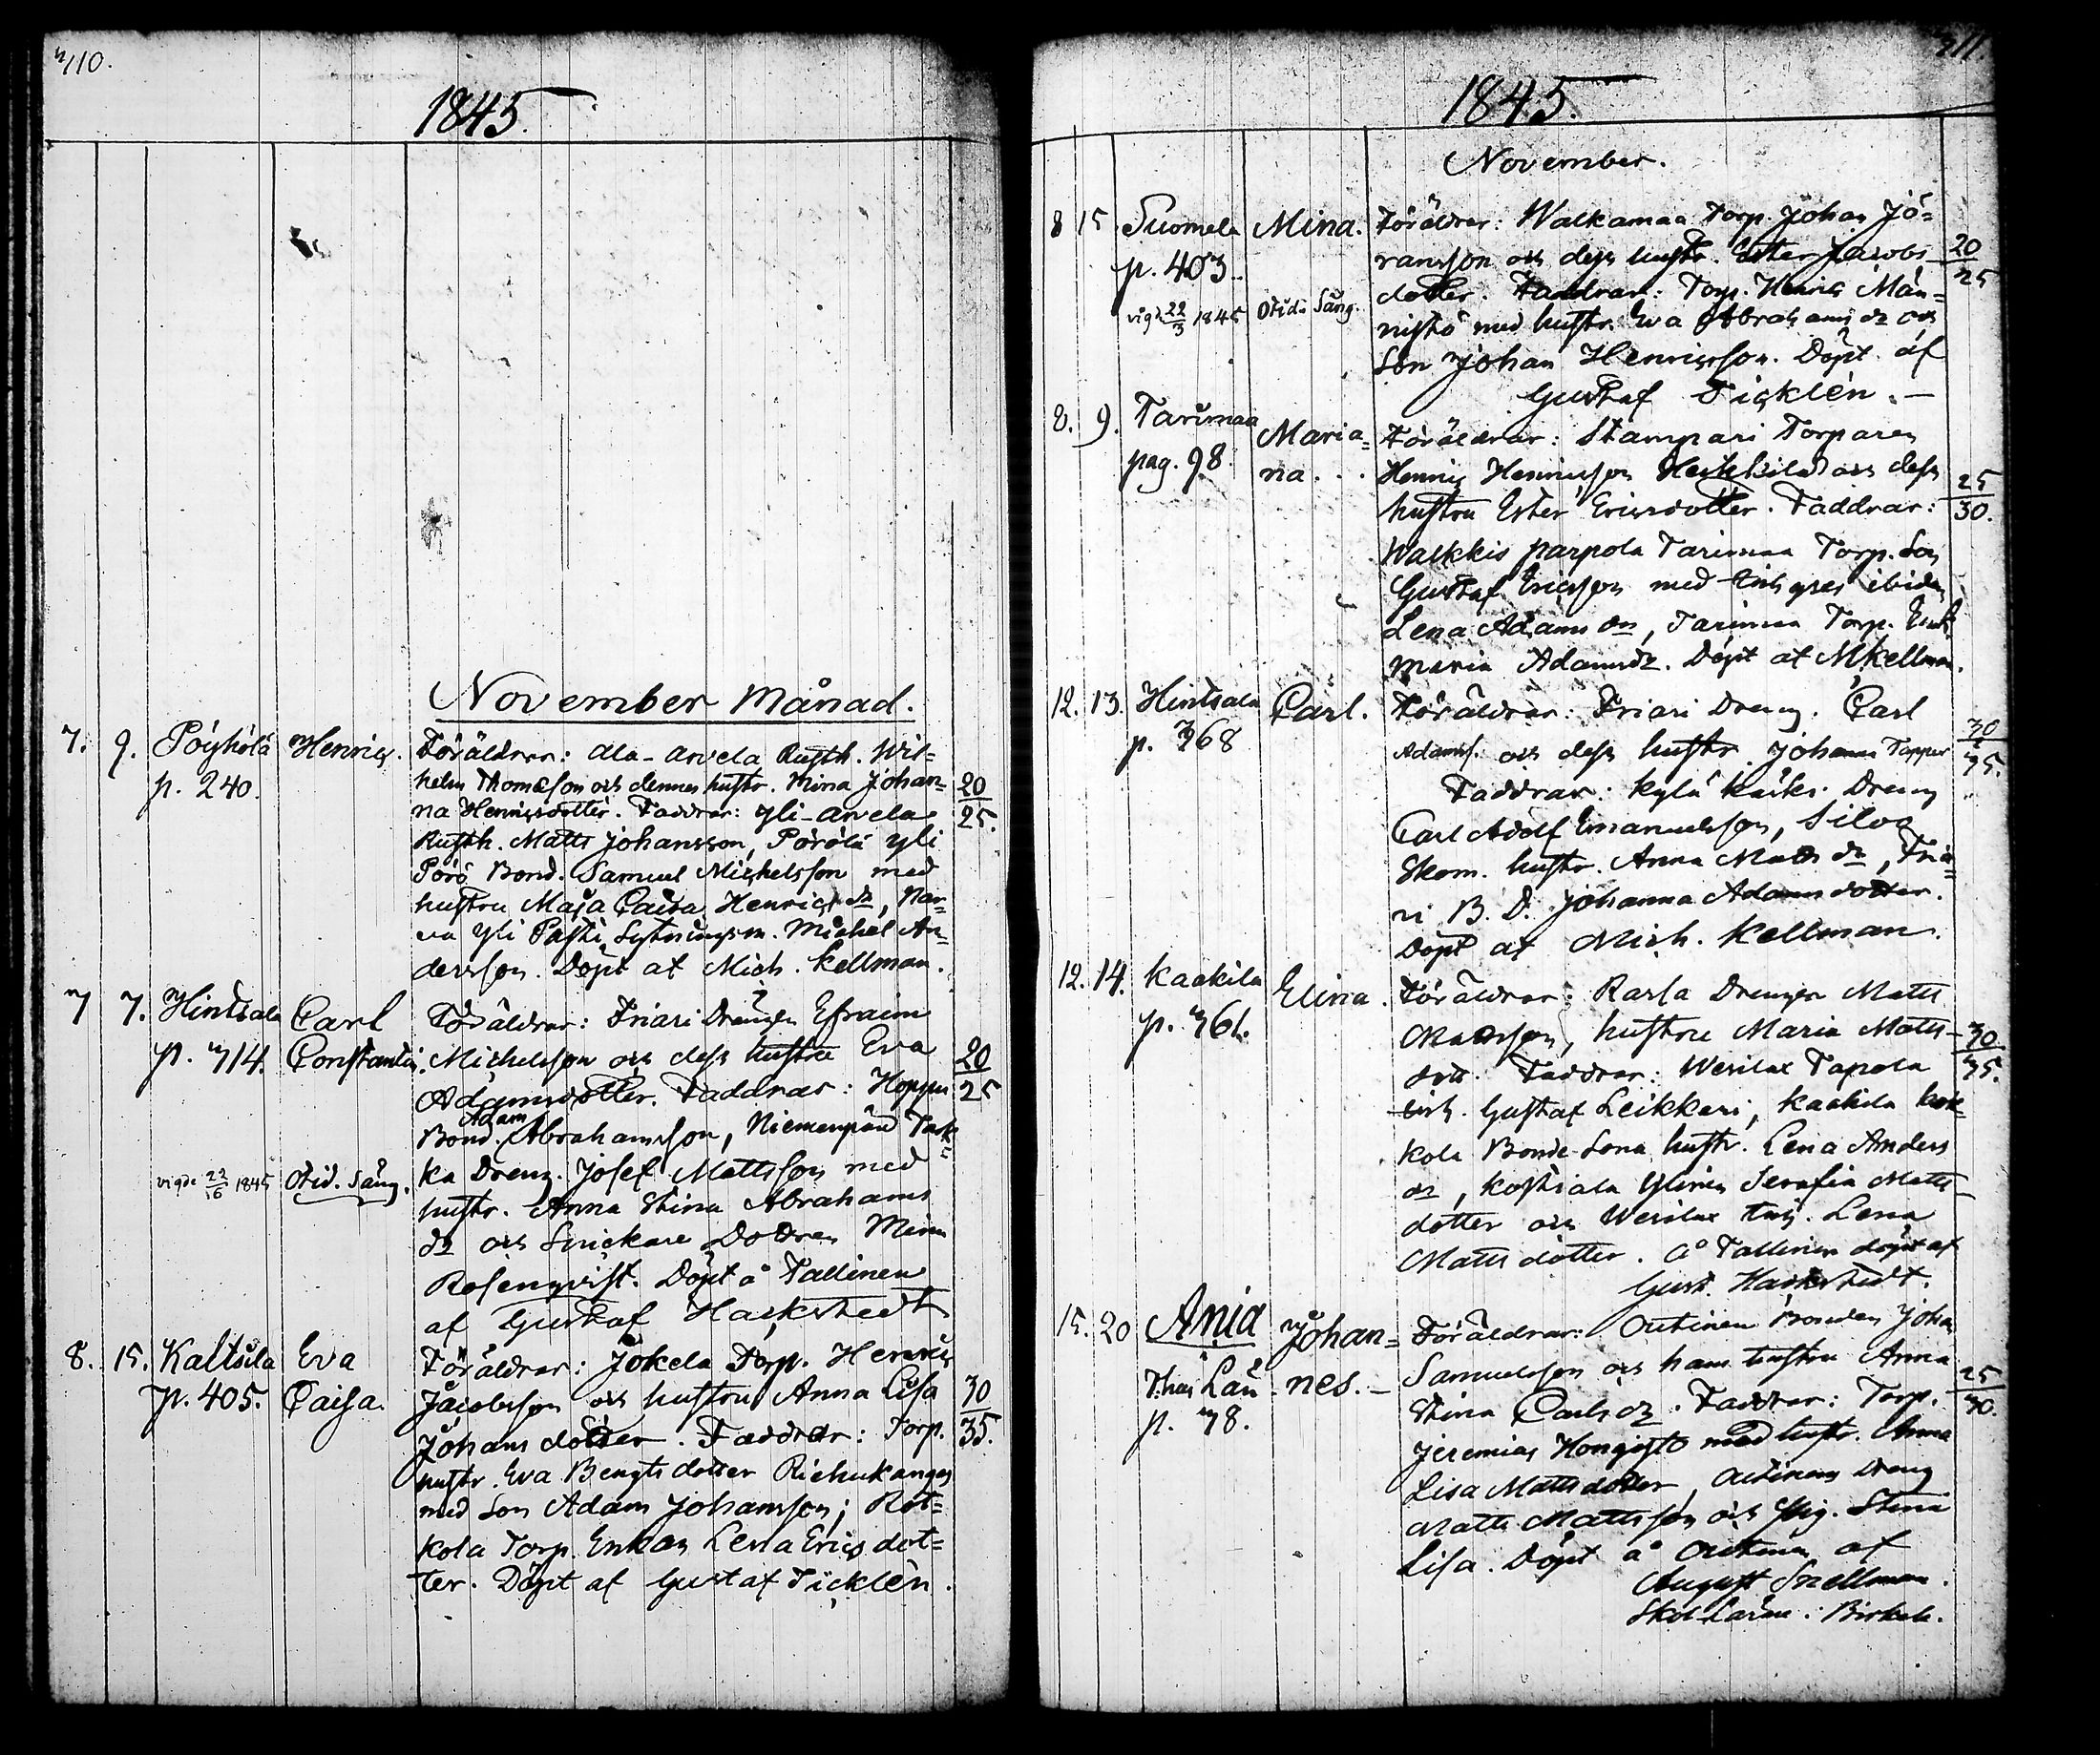 310.
1845.
November Månad.
7. 9. Pöyhölä Henric. Föräldrar: Ala-Arvela Rusth. Wil=
p. 240. helm Thomasson och dennes hustr. Mina Johan= 20
na Henricsdotter. Faddrar: Yli-Arvela 25.
Rusth. Matts Johansson, Pörölä Yli
Pörö Bond. Samuel Michelsson med
hustru Maja Caisa Henricsdr,
Yli Pasti Sytningsm. Michel An=
dersson. Döpt af Mich. Kellman.
7 7. Hintsala Carl Föräldrar: Friari Drengen Efraim
p. 314. Constantin. Michelsson och dess hustru Eva 20
Adamsdotter. Faddrar: Hoppu 25
Adam
Bond. Abrahamsson, Niemenpää Park=
vigde 22/16 1845 Otid. Säng. ka Dreng. Josef Mattsson med
hustr. Anna Stina Abrahams
dr och Snickare Dottren Mina
Rosenqvist. Döpt å Tallinen
af Gustaf Hackstedt
8. 15. Kaltsila Eva Föräldrar: Jokela Torp. Henric
p. 405. Caisa. Jacobsson och hustru Anna Lisa 30
Johansdotter. Faddrar: Torp. 35.
hustr. Eva Bengtsdotter Riehukangas
med Son Adam Johansson; Rot=
kola Torp. Enkan Lena Erics dot=
ter. Döpt af Gustaf Ticklén.
311.
1845.
November.
8 15 Suomela Mina. Föräldrar: Walkamaa Torp. Johan Jö=
p. 403. ransson och dess hustr. Ester Jacobs 20
dotter. Faddrar: Torp. Henric Män= 25
vigde 22/3 1845 Otidi Säng. nistö med hustr. Eva Abrahamsdr och
Son Johan Henricsson. Döpt af
Gustaf Ticklén.
8. 9. Tarimaa Maria= Föräldrar: Stampari Torparen
pag. 98. na. Henric Henricsson Heikkilä och dess 25
hustru Ester Ericsdotter. Faddrar: 30.
Walkkis parpola Tarimaa Torp. Son
Gustaf Ericsson med ibidem
Lena Adams dr, Tarimaa Torp. Enk.
Maria Adamsdr. Döpt af M Kellman.
12. 13. Hintsala Carl. Föräldrar: Friari Dreng. Carl 30
p. 368 Adamss. och dess hustr. Johanna Tappur 35.
Faddrar: Kylä Käiki Dreng
Carl Adolf Emanuelsson, Silvo
Skom. hustr. Anna Matts dr, Fria=
ri B. D. Johanna Adamsdotter.
Döpt af Mich. Kellman.
12. 14. Kaakila Elina. Föräldrar: Rassa Drengen Matts
p. 361. Mattsson, hustru Maria Matts- 30
dott. Faddrar: Wesilax Tapola 35.
Gustaf Leikkari, Kaakila Kok=
kola Bonde Sona hustr. Lena Anders
dr, Koskiala Ylinen Serafia Matts-
dotter och Wesilax Lena
Matts dotter. Å Tallinen döpt af
Gust. Hackstedt.
15. 20 Ania Johan= Föräldrar: Outinen Bonden Johan
Län nes. Samuelsson och hans hustru Anna 25
p. 38. Stina Carlsdr. Faddrar: Torp. 30.
Jeremias Hongisto med hustr. Anna
Lisa Mattsdotter, Outinen Dreng
Matts Mattsson och Pig. Stina
Lisa. Döpt å Outinen af
August Snellman
Skol Lärare i Birkala.